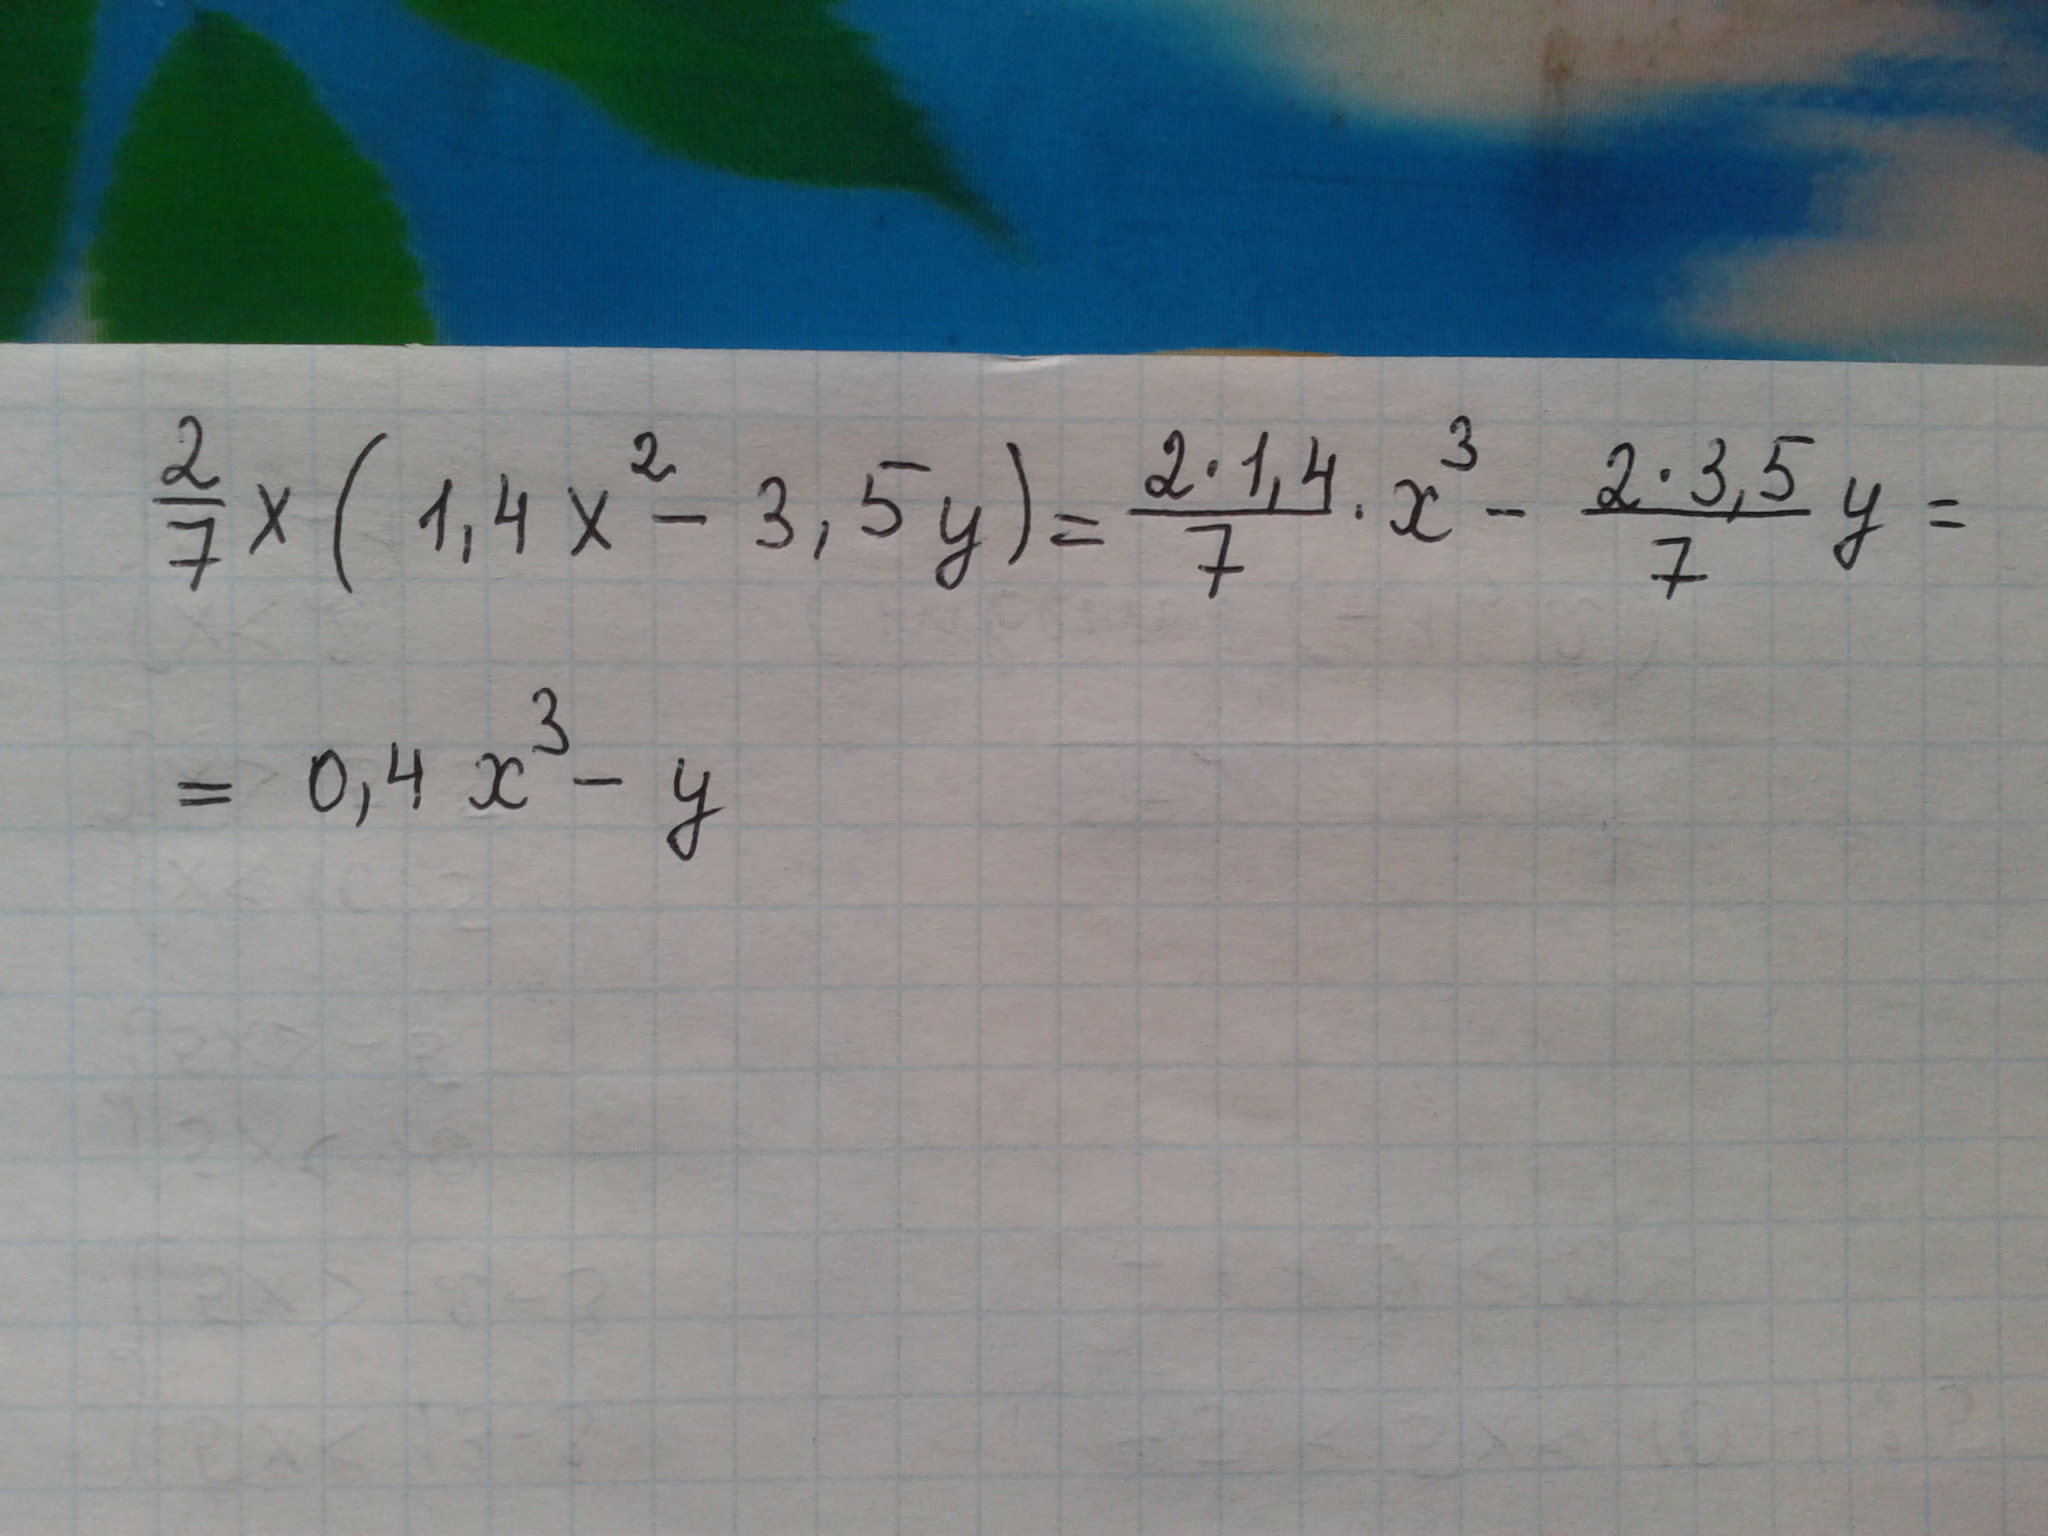 2/7 x ( 1,4 x² - 3,5 y ) = 2·1,4/7 · x³ - 2·3,5/7 y =
= 0,4 x³ - y